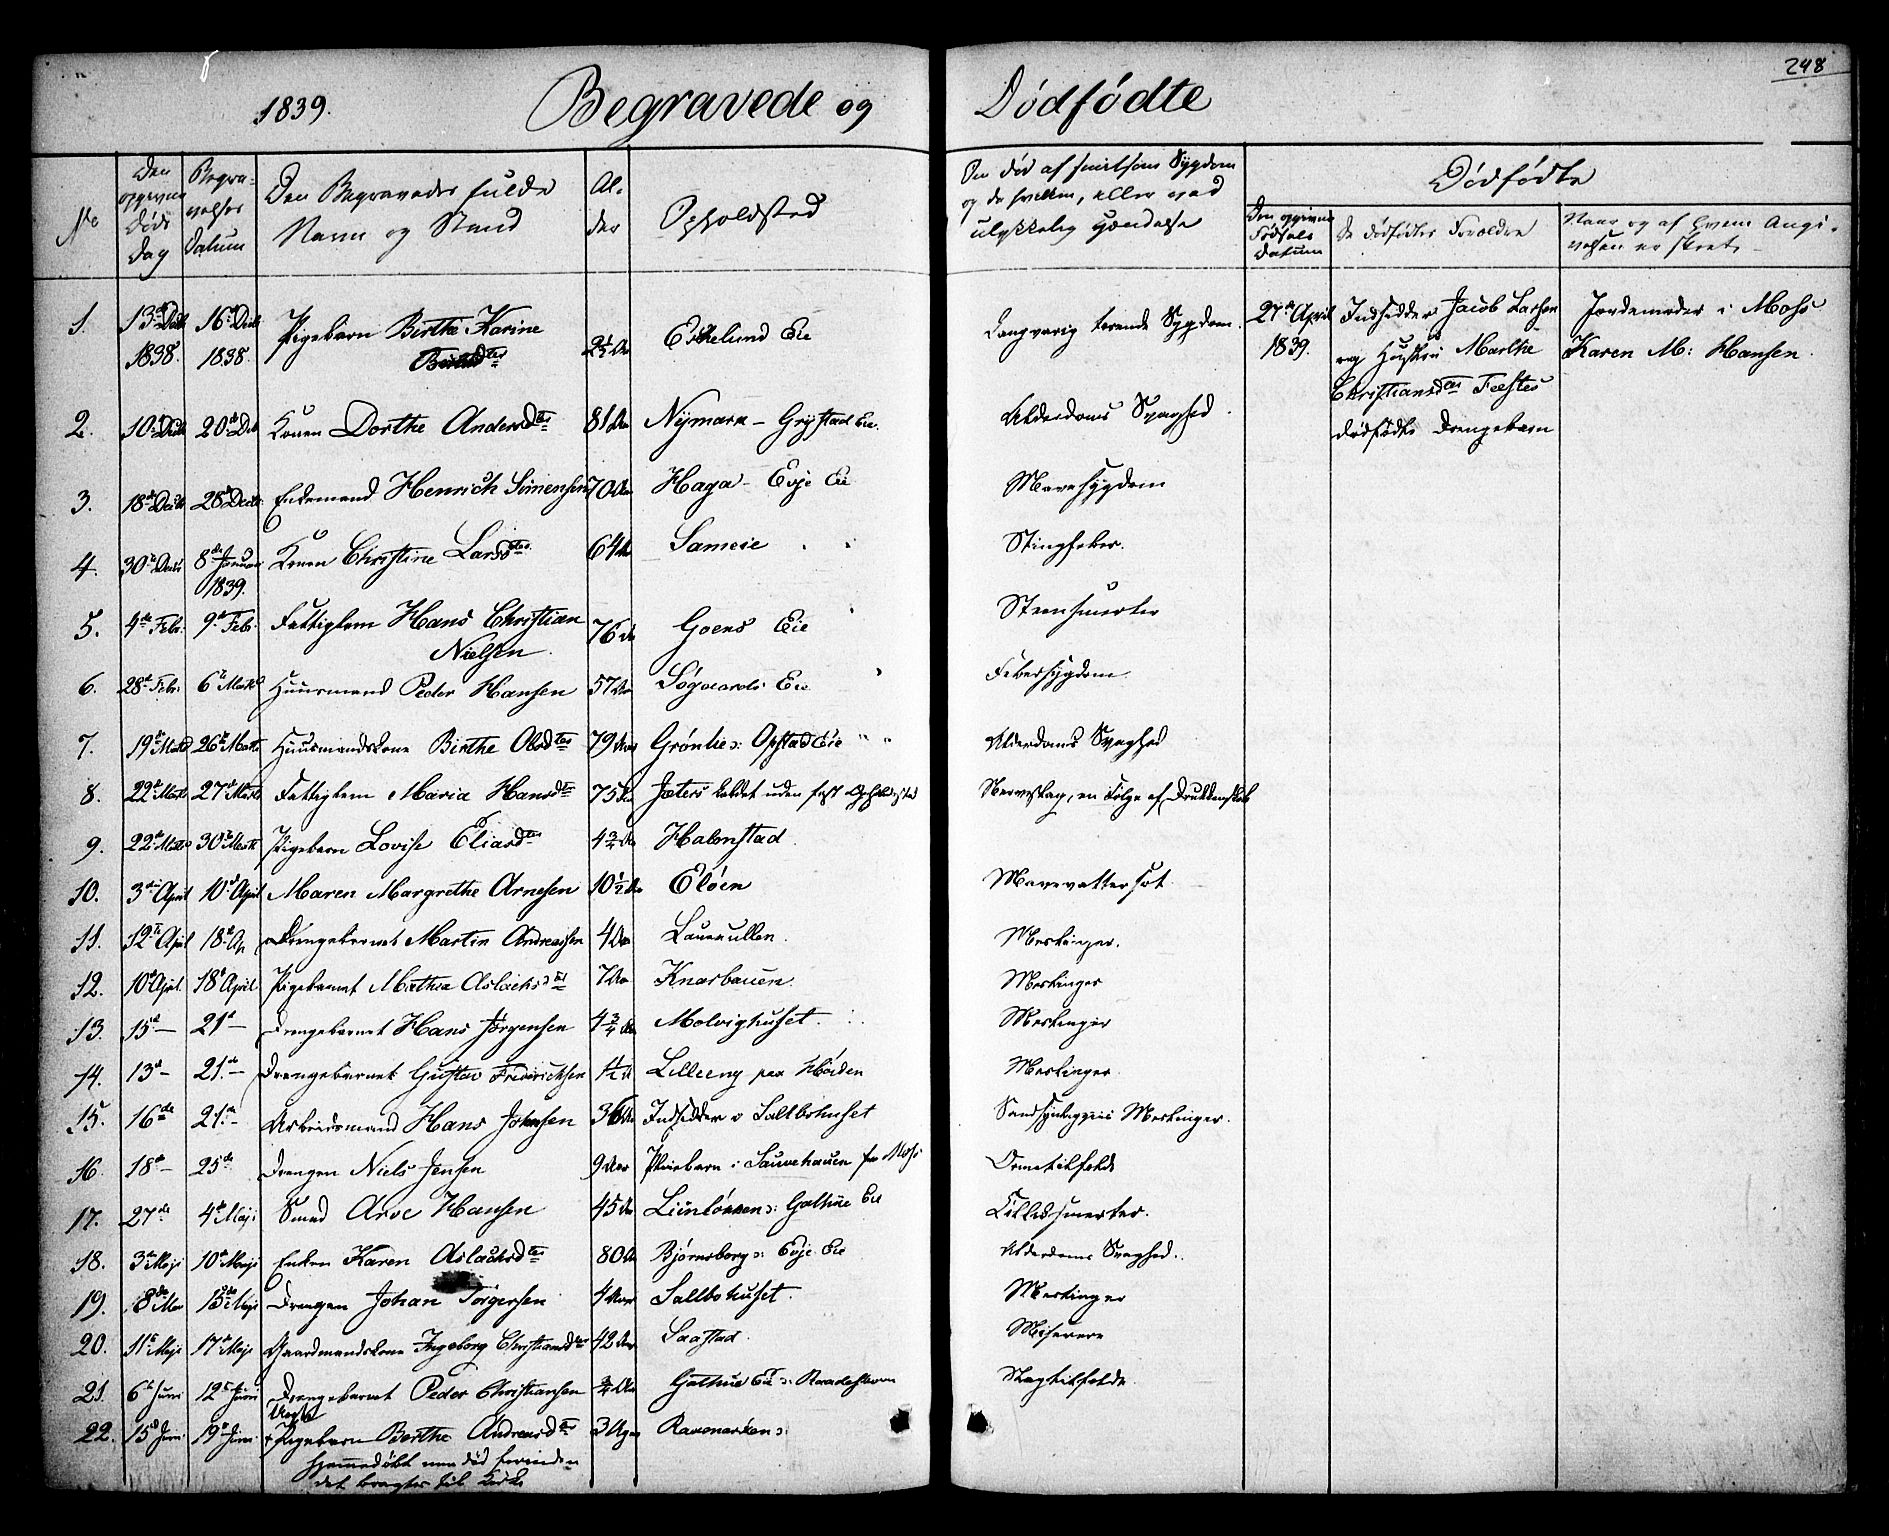 248
1839. Begravede og Dødfødte
No
Den opgivne Døds Dag
Begravelses Datum
Den Begravedes fulde Navn og Stand
Alder
Opholdsted
Om død af smitsom Sygdom og da hvilken, eller ved ulykkelig Hændelse
Dødfødte
Den opgivne Fødsels Datum
De dødfødtes Forældre
Naar og af hvem Angivelsen er skeet
1. 13de Decb 1838. 16de Decb 1838. Pigebarn Birthe Karine 2½ Aar Eskelund Eie Langvarig tærende Sygdom.
27de April 1839. Indsidder Jacob Larsen Jordemoder i Moss
og Hustru Marthe Karen M: Hansen.
Christiansdter
dødfødte Drengebarn
2. 10de Decb 20de Decb Konen Dorthe Andersdter 81 Aar Nymark - Grystad Eie. Alderdoms Svaghed.
3. 18de Decb 28de Decb Enkemand Henrich Simensen 70 Aar Haga - Evje Eie Mavesygdom
4. 30te Decbr 8de Januar 1839. Konen Christine Larsdter 64 Aar Sameie Stingfeber.
5. 4de Febr. 9de Febr. Fattiglem Hans Christian
Nielsen 76 Aar Goens Eie Steensmerter
6. 28de Febr. 6te Marts Huusmand Peder Hansen 57 Aar Søgaards Eie Febersygdom
7. 19de Marts 26de Marts Huusmandskone Birthe Olsdter 79 Aar Grønlie: Opstad Eie " " Alderdoms Svaghed
8. 22de Marts 27de Marts Fattiglem Maria Hansdter 75 Aar Jeters kaldet uden fast Opholdsted Nerveslag, en Følge af Drukkenskab
9. 22de Marts 30te Marts Pigebarn Lovise Eliasdter 4¾ Aar Halmstad.
10. 3die April 10de April Maren Margrethe Arnesen 10½ Aar Eløen Mavevattersot
11. 12te April 18de Ap. Drengebarnet Martin Andreassen 4 Aar Laurkullen. Meslinger.
12. 10de April. 18de April Pigebarnet Mathea Aslachsdter 7 Aar Knarbauen. Meslinger
13. 15de — 21de — Drengebarnet Hans Jørgensen 4¾ Aar Molvighuset. Meslinger
14. 13de — 21de — Drengebarnet Gustav Fredrichsen 1½ Lilleeng paa Høiden Meslinger
15. 16de 21de - Arbeidsmand Hans Johnsen 36 Aar Indsidder v Saltbohuset Sandsynligviis Meslinger.
16. 18de — 25de Drengen Niels Jensen 9 Aar Pleiebarn i Sauvehauen fra Moss Ormetilfælde
17. 27de 4de Maji Smed Arve Hansen 45 Aar Gathue Eie
18. 3die Maji 10de Maji Enken Karen Aslachsdter 80 Aar Bjørnsborg: Evje Eie Alderdoms Svaghed.
19. 8de Mai 15de Maji Drengen Johan Torgersen 4 Aar Saltbohuset. Meslinger
20. 11te Maji 17de Maji Gaardmandskone Ingeborg Christiansdter 42 Aar Saastad. Miserere
21. 6te Juni 12te Juni Drengebarnet Peder Christiansen ¾ Aar Gathue Eie Slagtilfælde.
22. 15de Juni 19de Juni Uægte
Pigebarn Berthe Andreasdter 3 Uger
hjemmedøbt men død forinden
det bragtes til Kirke